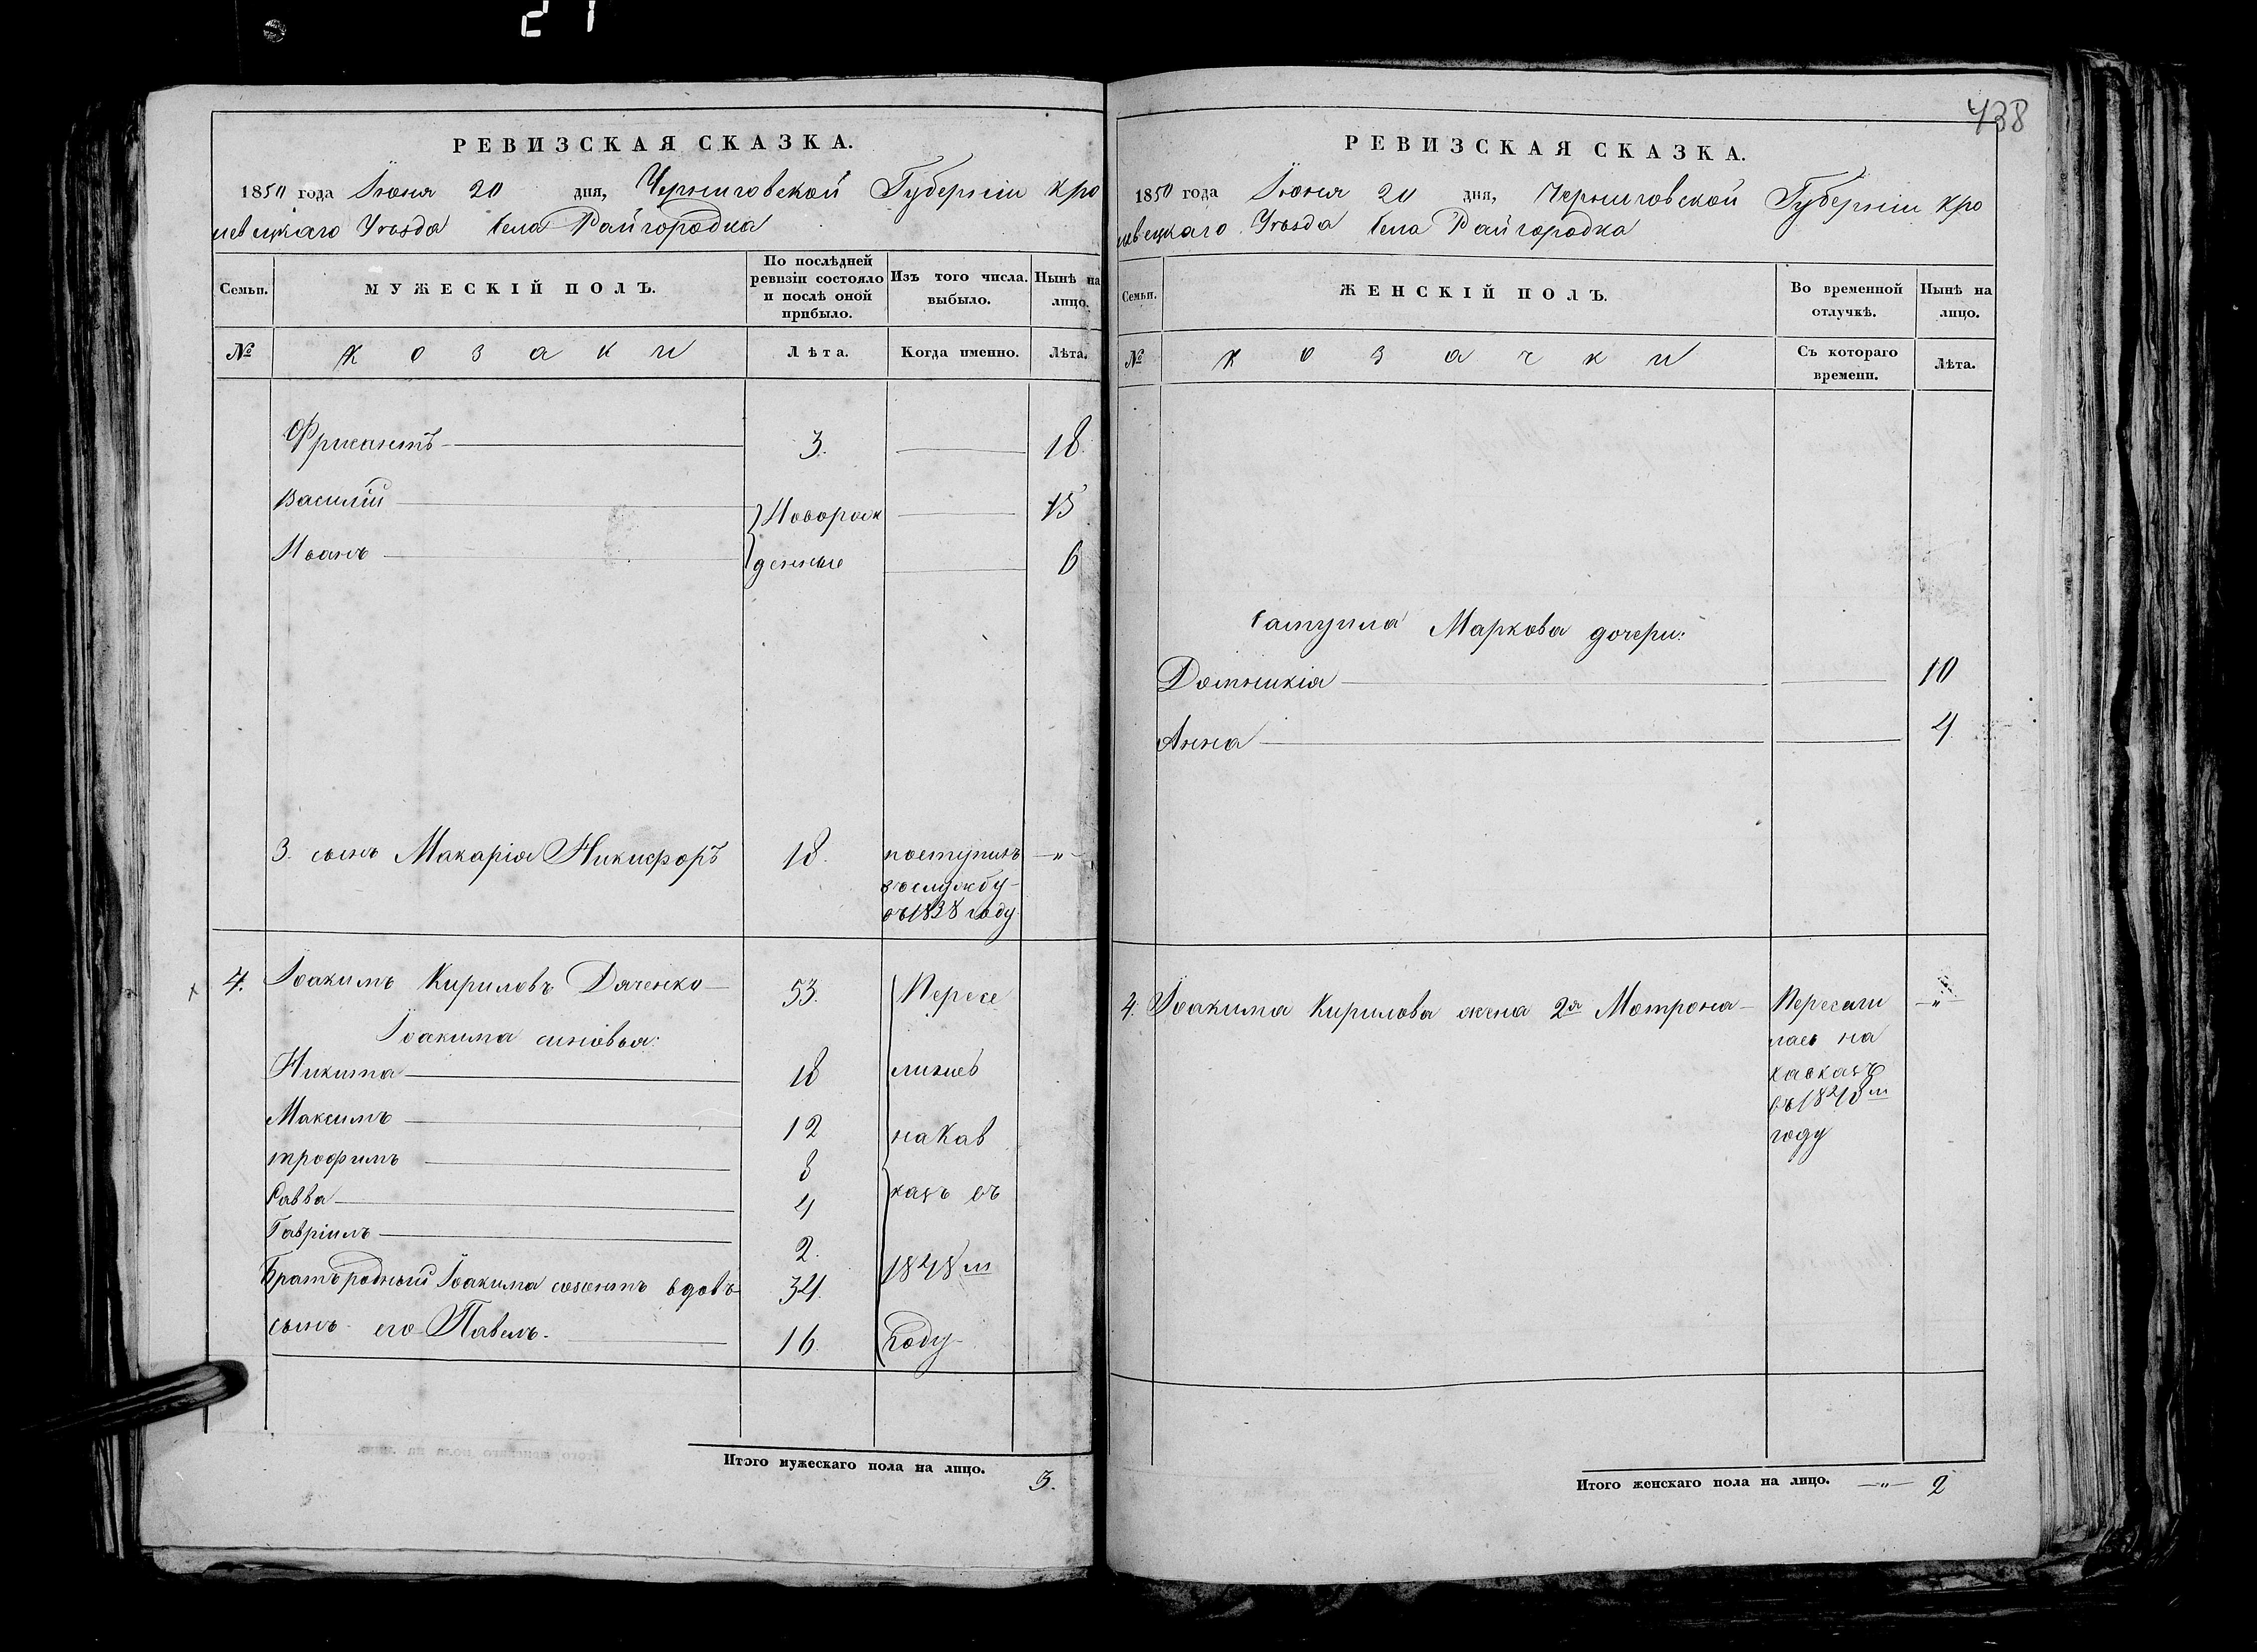 21
РЕВИЗСКАЯ СКАЗКА.
1850 года Іюня 20 дня, Черниговской Губерніи Кро
левецкаго Уезда Села Райгородка
Семьи.
МУЖЕСКІЙ ПОЛЪ.
По послѣдней
ревизіи состояло
и послѣ оной
прибыло.
Изъ того числа
выбыло.
Нынѣ на
лицо.
№
Козаки
Лѣта.
Когда именно.
Лѣта.
3.
18.
Василій
Новорож
15
Иванъ
денные
6
3. сынъ Макарія Никифоръ
18.
поступилъ
въ службу
въ 1838 году
— „ —
4. Іоакимъ Кириловъ Дяченко
53.
Пересе
Іоакима синовья:
Никита
18
лились
Максимъ
12
на Кав
трофимъ
8
Савва
4
казъ въ
Гавріилъ
2.
1848 м
Братъ родный Іоакима созонтъ вдовъ
34.
сынъ его Павелъ.
16.
Году
Итого мужескаго пола на лицо.
3.
438
РЕВИЗСКАЯ СКАЗКА.
1850 года Іюня 20 дня, Черниговской Губерніи Кро
левецкаго Уезда Села Райгородка
Семьи.
ЖЕНСКІЙ ПОЛЪ.
Во временной
отлучкѣ.
Нынѣ на
лицо.
№
Козачки
Съ котораго
времени.
Лѣта.
Маркова дочери:
Домникія
10
Анна
4
4. Іоакима Кирилова жена 2я Мотрона
Пересели
лась на
кавказъ
въ 1848 м
году
— „ —
Итого женскаго пола на лицо. — „ — 2